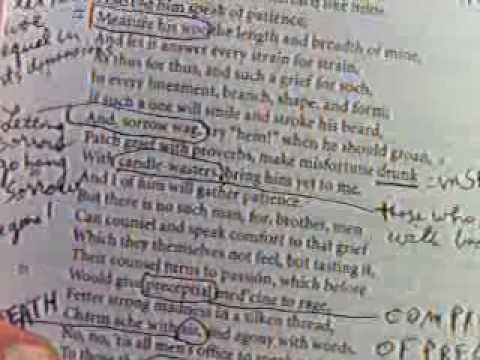 him speak of patience;
Measure his woe the length and breadth of mine,
equal in
And let it answer every strain for strain,
As thus for thus, and such a grief for such,
In every lineament, branch, shape, and form;
If such a one will smile and stroke his beard,
Letting
And, sorrow wag, cry "hem!" when he should groan,
sorrow
Patch grief with proverbs, make misfortune drunk
go hang
With candle-wasters, bring him yet to me,
Sorrow
And I of him will gather patience.
those who
But there is no such man; for, brother, men
gone!
Can counsel and speak comfort to that grief
with
Which they themselves not feel, but tasting it,
Their counsel turns to passion, which before
Would give preceptial med'cine to rage,
Fetter strong madness in a silken thread,
EATH
Charm ache with air, and agony with words.
OF PREC
No, no, 'tis all men's office to speak
To those